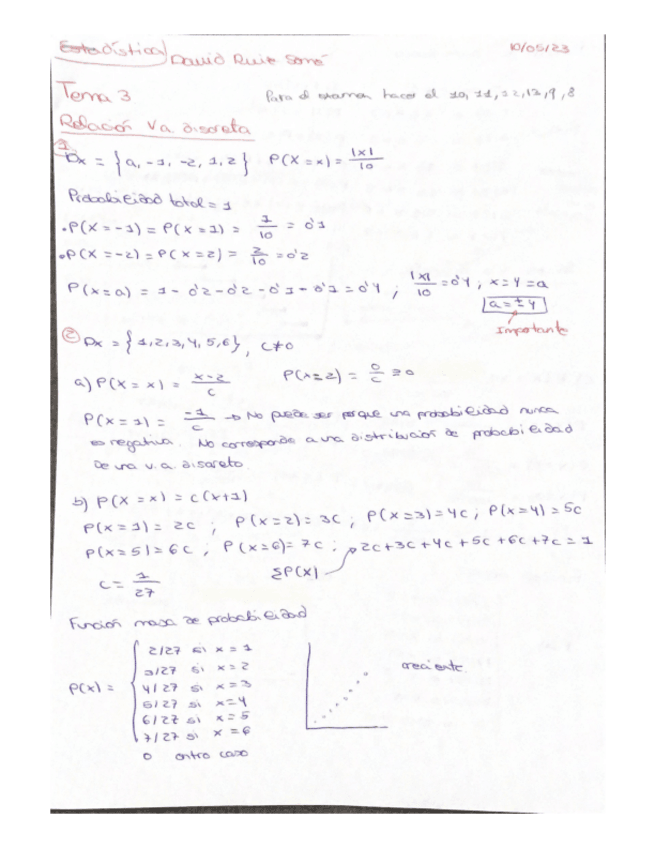 Estadística David Ruiz 10/05/23
Tema 3 Para el examen hacer el 10, 11, 12, 13, 9, 8
Relación V a. discreta
1
Dx = {a, -1, -2, 1, 2} P(X = x) = |x|/10
Probabilidad total = 1
• P(X = -1) = P(X = 1) = 1/10 = 0'1
• P(X = -2) = P(X = 2) = 2/10 = 0'2
P(X = a) = 1 - 0'2 - 0'2 - 0'1 - 0'1 = 0'4 ; |x|/10 = 0'4 , x = 4 = a
a = ± 4
Importante
2 Dx = {1, 2, 3, 4, 5, 6}, c≠0
a) P(X = x) = x-2/c P(X = 2) = 0/c = 0
P(X = 1) = -1/c → No puede ser porque una probabilidad nunca
es negativa. No corresponde a una distribución de probabilidad
de una v. a. discreta.
b) P(X = x) = c(x+1)
P(X = 1) = 2c ; P(X = 2) = 3c ; P(X = 3) = 4c ; P(X = 4) = 5c
P(X = 5) = 6c ; P(X = 6) = 7c ; 2c + 3c + 4c + 5c + 6c + 7c = 1
c = 1/27 ΣP(X)
Función masa de probabilidad
P(x) =
2/27 si x = 1
3/27 si x = 2
4/27 si x = 3
5/27 si x = 4
6/27 si x = 5
7/27 si x = 6
0 entro caso
creciente.